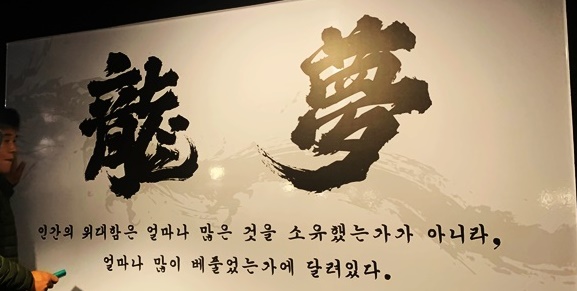 龍 夢
인간의 위대함은 얼마나 많은 것을 소유했는가가 아니라,
얼마나 많이 베풀었는가에 달려있다.